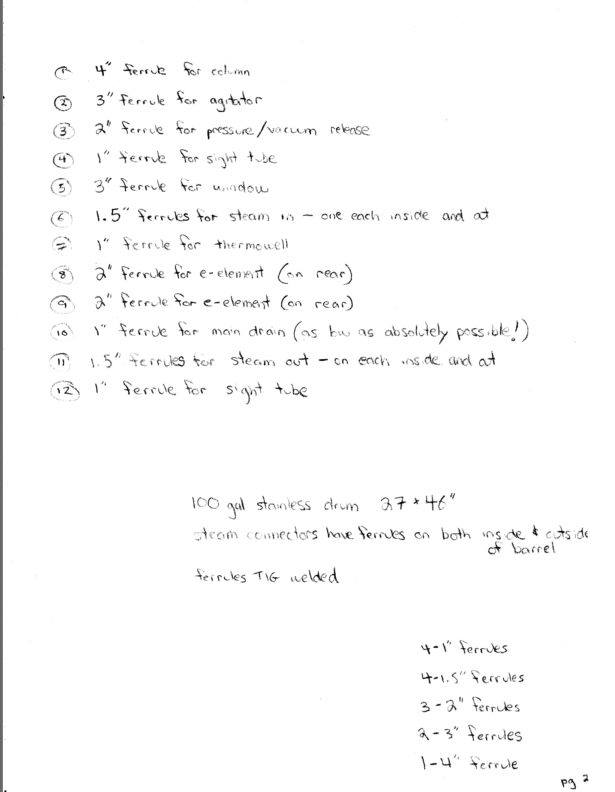 1 4" ferrule for column
2 3" ferrule for agitator
3 2" ferrule for pressure/vacuum release
4 1" ferrule for sight tube
5 3" ferrule for window
6 1.5" ferrules for steam in - one each inside and at
7 1" ferrule for thermowell
8 2" ferrule for e-element (on rear)
9 2" ferrule for e-element (on rear)
10 1" ferrule for main drain (as low as absolutely possible!)
11 1.5" ferrules for steam out - on each inside and at
12 1" ferrule for sight tube
100 gal stainless drum 27 * 46"
steam connectors have ferrules on both inside & outside
of barrel
ferrules TIG welded
4-1" ferrules
4-1.5" ferrules
3-2" ferrules
2-3" ferrules
1-4" ferrule
pg 2